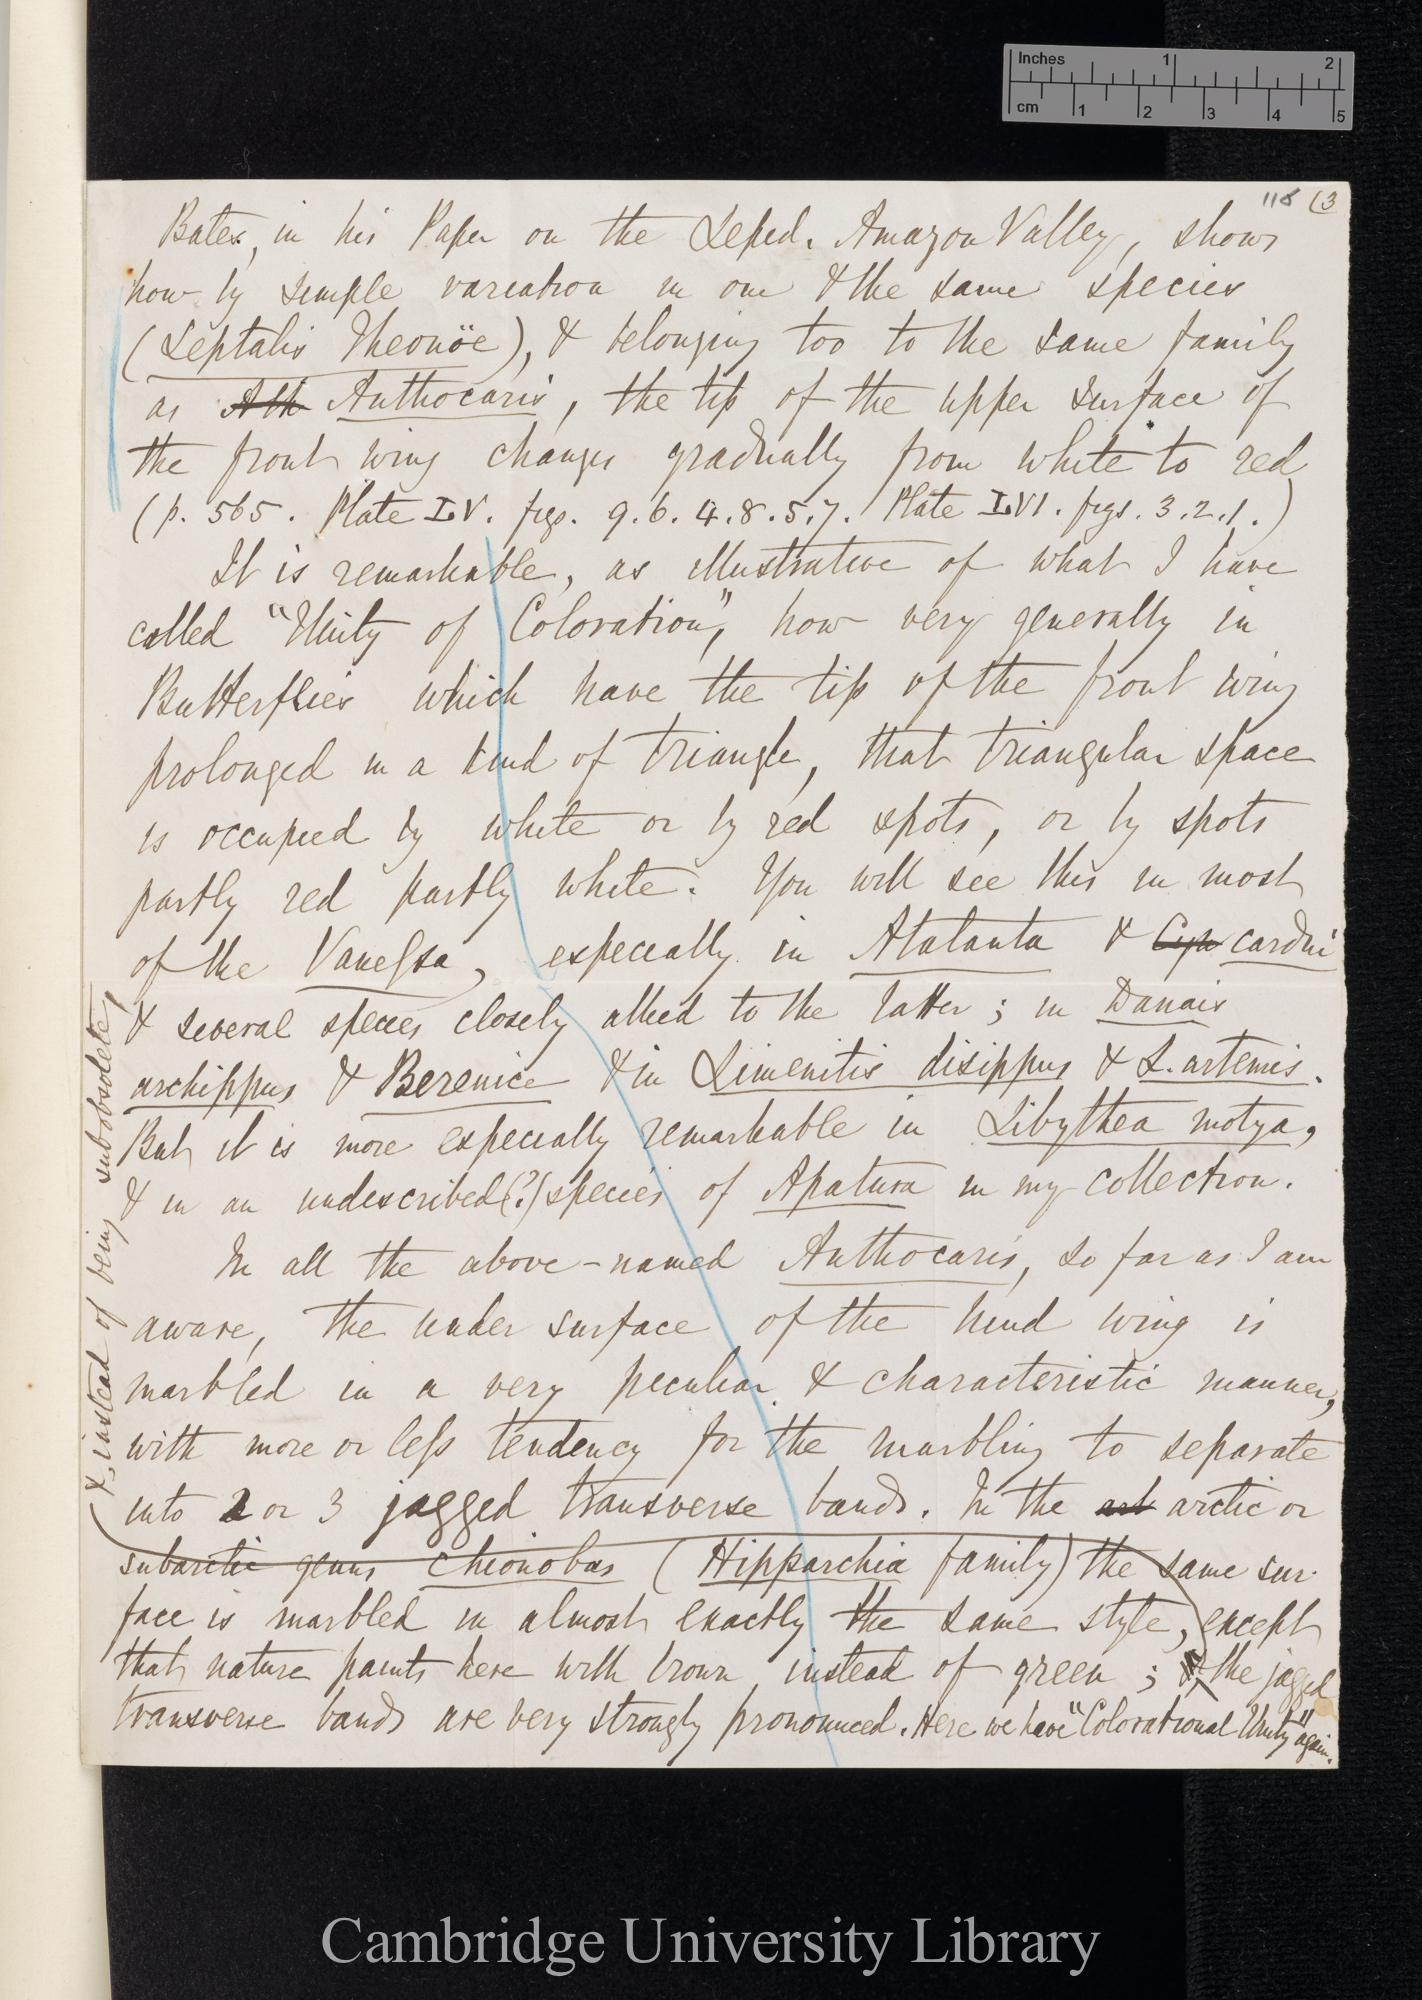 Inches 1 2
cm 1 2 3 4 5
118 (3
Bates, in his Paper on the Leped. Amazon Valley, shows
how by simple variation in one & the same species
(Leptalis Theonöe), & belonging too to the same family
as Ath Anthocaris, the tip of the upper surface of
the front wing changes gradually from white to red
(p. 565. Plate LV. figs. 9.6.4.8.5.7. Plate LVI. figs. 3.2.1.)
It is remarkable, as illustrative of what I have
called "Unity of Coloration", how very generally in
Butterflies which have the tip of the front wing
prolonged in a kind of triangle, that triangular space
is occupied by white or by red spots, or by spots
partly red partly white. You will see this in most
of the Vanessa, especially in Atalanta & Cyn cardui
& several species closely allied to the latter; in Danais
archippus & Berenice & in Limenitis disippus & L. artemis.
But it is more especially remarkable in Libythea motya,
& in an undescribed (?) species of Apatura in my collection.
In all the above-named Anthocaris, so far as I am
aware, the under surface of the hind wing is
marbled in a very peculiar & characteristic manner,
with more or less tendency for the marbling to separate
into 2 or 3 jagged transverse bands. In the art arctic or
subarctic genus Chionobas (Hipparchia family) the same sur-
face is marbled in almost exactly the same style, except
that nature paints here with brown instead of green; & the jagged
transverse bands are very strongly pronounced. Here we have "Colorational Unity" again.
&, instead of being subobsolete,
Cambridge University Library